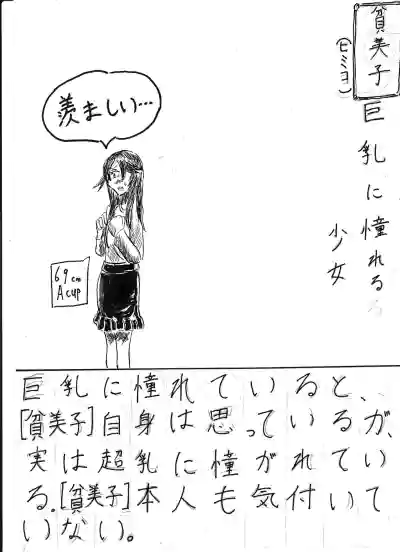 貧美子
(ヒミヨ)
巨乳に憧れる
少女
羨ましい…
69cm
Acup
巨乳に憧れていると、
[貧美子]自身は思っているが、
実は超乳に憧がれてい
る.[貧美子]本人も気付いて
いない。